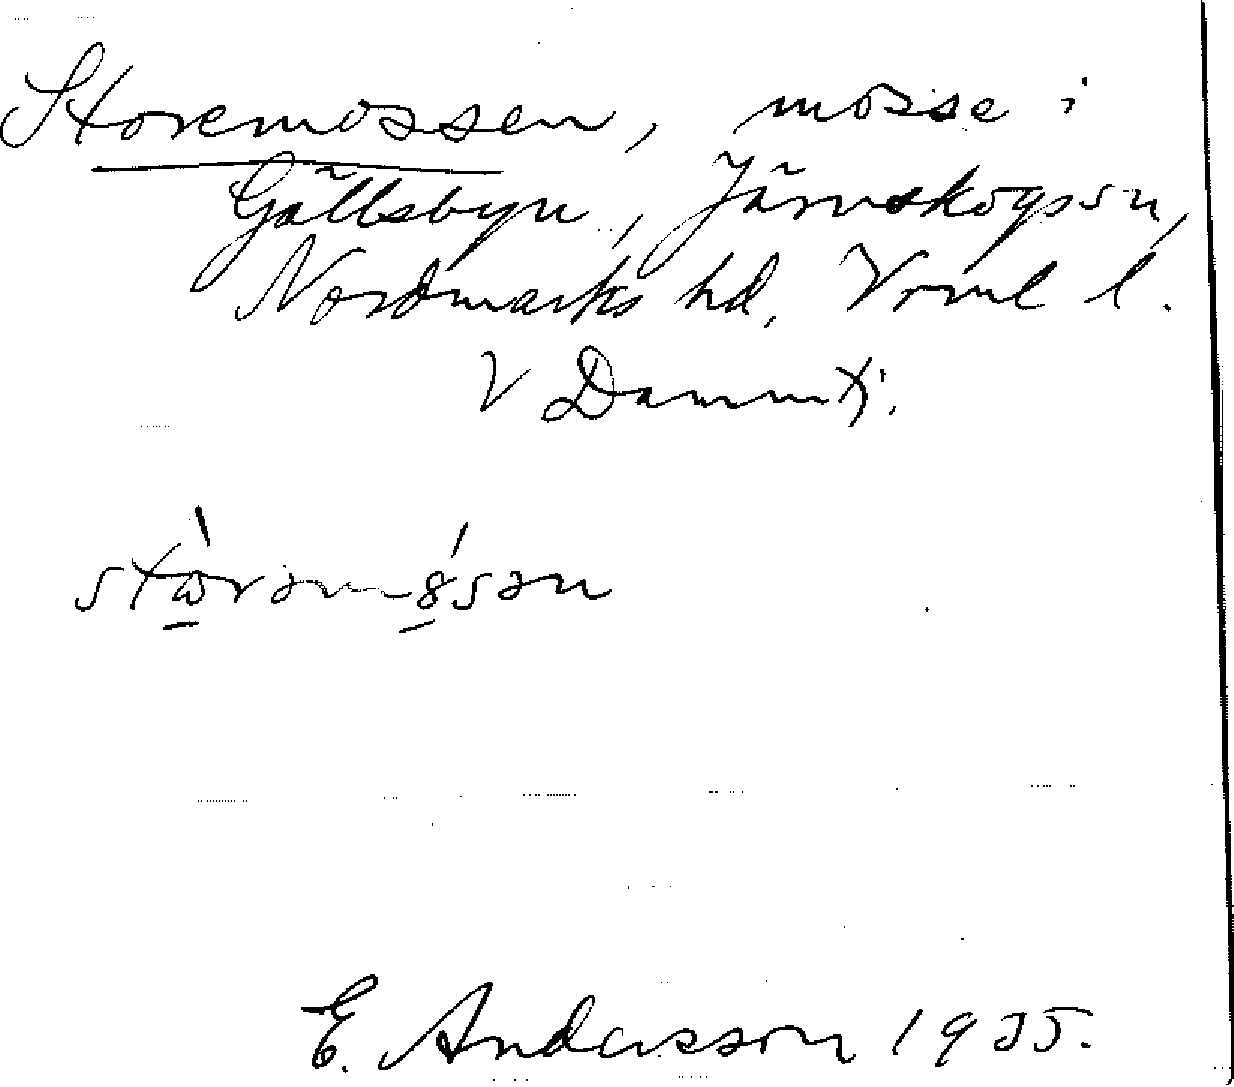 Storemossen, mosse i
Gällsbyn, Järnskogs sn,
Nordmarks hd, Vrml l.
V Dammtj.
E. Andersson 1935.